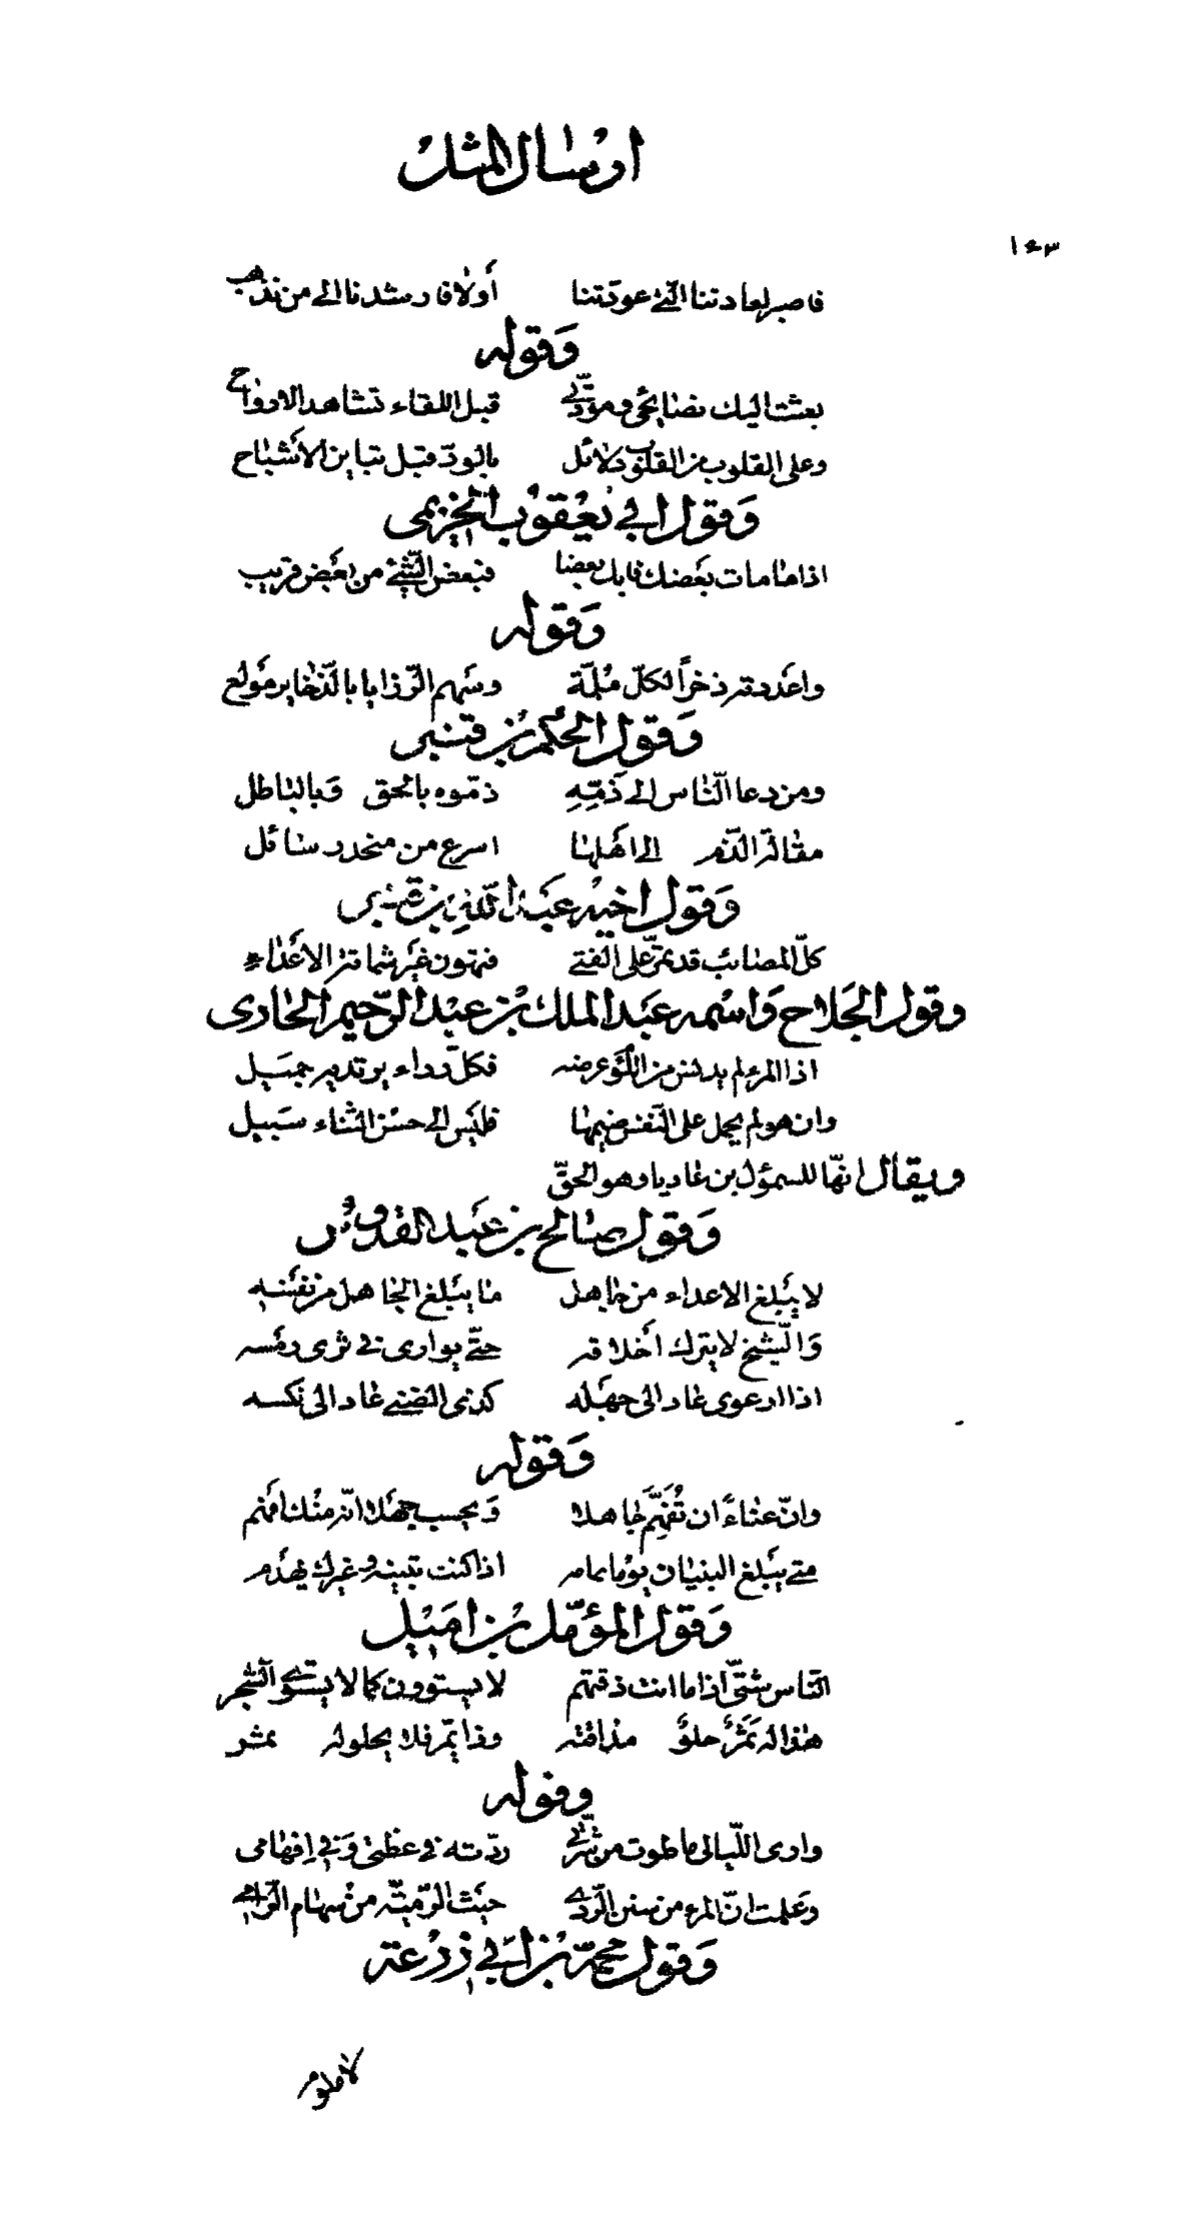 ارسال المثل
١٤٣
فاصبر لعادتنا التي عودتنا أولا فارشدنا الى من نذهب
وقوله
بعثت اليك نصائحي ومودتي قبل اللقاء تشاهد الارواح
وعلى القلوب من القلوب دلائل بالود قبل تباين الأشباح
وقول ابي يعقوب الخزيمى
اذا ما مات بعضك فابك بعضا فبعض الشئ من بعض قريب
وقوله
واعددته ذخراً لكل ملمّة وسهم الرّزايا بالذّخاير مولع
وقول الحكم بن قنبر
ومن دعا النّاس الى ذمّه ذمّوه بالحق وبالباطل
مقالة الذّم الى اهلها اسرع من منحدر سائل
وقول اخيه عبد اللّه بن قنبر
كلّ المصائب قد تمرّ على الفتى فتهون غير شماتة الأعداء
وقول الجلاح واسمه عبد الملك بن عبد الرّحيم الحارى
اذا المرء لم يدنس من اللّؤم عرضه فكلّ رداء يرتديه جميل
وان هو لم يحمل على النّفس ضيمها فليس الى حسن الثناء سبيل
ويقال انهّا للسمؤل بن عاديا وهو الحقّ
وقول صالح بن عبد القدوس
لا يبلغ الاعداء من جاهل ما يبلغ الجاهل من نفسه
والشّيخ لا يترك اخلاقه حتّى يوارى فى ثرى رمسه
اذا ارعوى عاد الى جهله كذى الضنى عاد الى نكسه
وقوله
وانّ عناءً ان تُفهِّم جاهلا ويحسب جهلا انّه منك افهم
متى يبلغ البنيان يوما تمامه اذا كنت تبنيه وغيرك يهدم
وقول المؤمّل بن اميل
النّاس شتّى اذا ما انت ذقتهم لا يستوون كما لا يستوى الشّجر
هذا له ثمر حلو مذاقته وذا يمّر فلا يحلو له ثمر
وقوله
وارى اللّيالى ما طوت من شرّتى ردّته فى عظتى وفى افهامى
وعلمت انّ المرء من سنن الرّدى حيث الرّميّة من سهام الرّامى
وقول محمّد بن ابي زرعة
لا ملوم